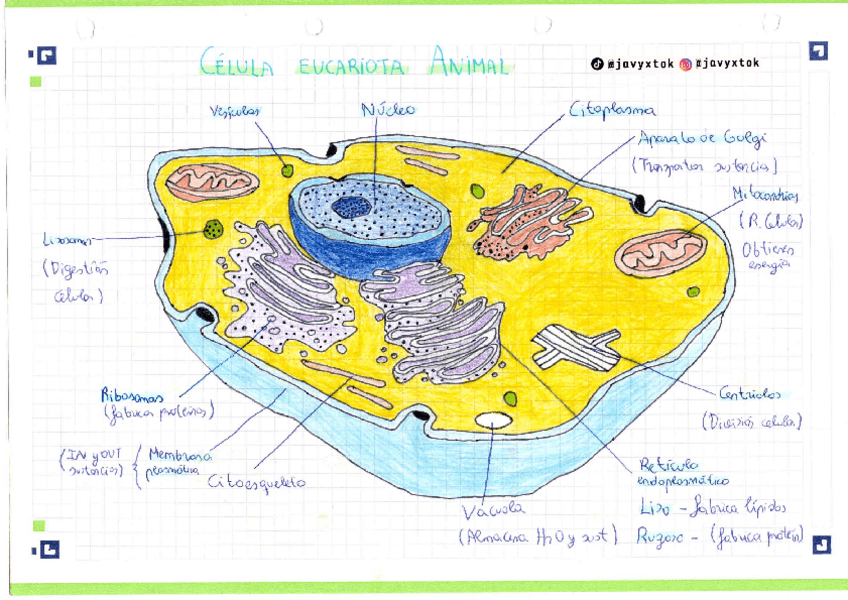 CÉLULA EUCARIOTA ANIMAL
@javyxtok @javyxtok
Vesículas
Núcleo
Citoplasma
Aparato de Golgi
(Transporta sustancias)
Mitocondrias
(R. Celular)
Obtienes
energía
Lisosomas
(Digestión
celular)
Ribosomas
(fabrica proteínas)
(IN y OUT
sustancias)
Membrana
plasmática
Citoesqueleto
Vacuola
(Almacena H2O y sust)
Centriolos
(División celular)
Retículo
endoplasmático
Liso - fabrica lípidos
Rugoso - (fabrica proteín)